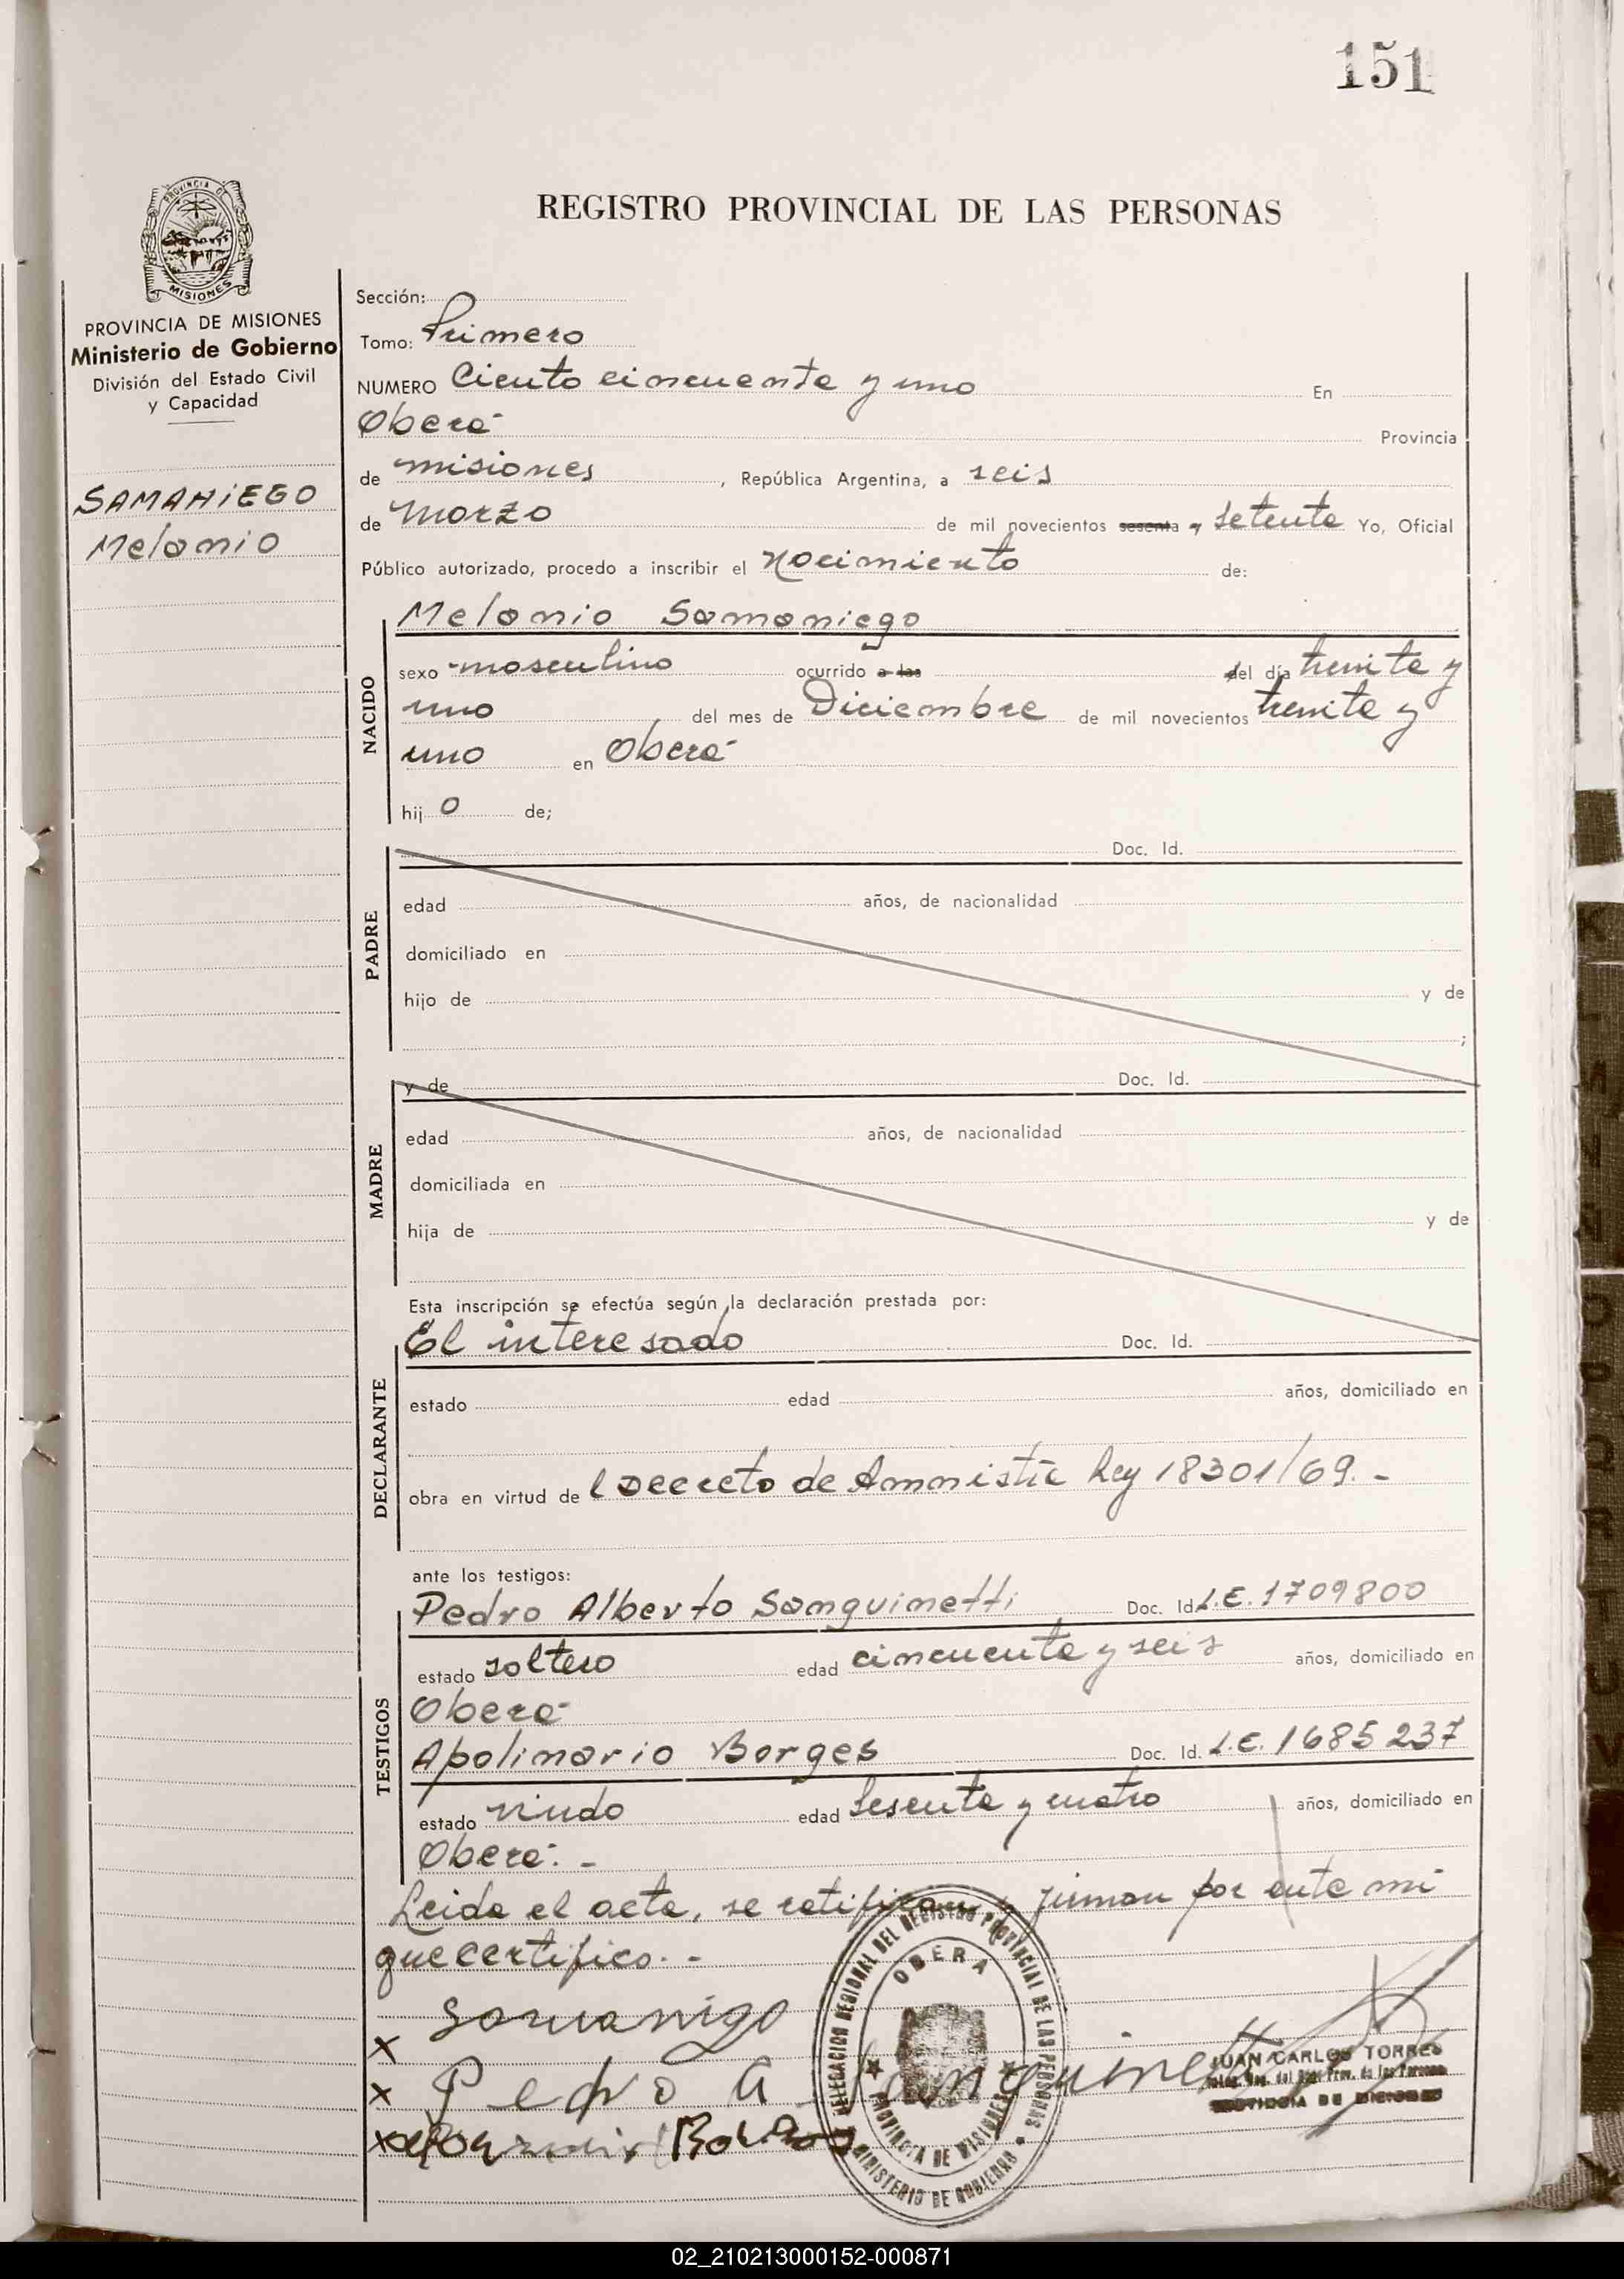 151
REGISTRO PROVINCIAL DE LAS PERSONAS
PROVINCIA DE
MISIONES
PROVINCIA DE MISIONES
Ministerio de Gobierno
División del Estado Civil
y Capacidad
SAMANIEGO
Melanio
Sección:
Tomo: Primero
NUMERO Ciento cincuenta y uno En
Oberá Provincia
de misiones, República Argentina, a seis
de Marzo de mil novecientos sesenta y setenta Yo, Oficial
Público autorizado, procedo a inscribir el Nacimiento de:
NACIDO
Melanio Samaniego
sexo masculino ocurrido a las del día treinta y
uno del mes de Diciembre de mil novecientos treinta y
uno en Oberá
hij o de;
PADRE
Doc. Id.
edad años, de nacionalidad
domiciliado en
hijo de y de
;
MADRE
y de Doc. Id.
edad años, de nacionalidad
domiciliada en
hija de y de
Esta inscripción se efectúa según la declaración prestada por:
DECLARANTE
El interesado Doc. Id.
estado edad años, domiciliado en
obra en virtud de l Decreto de Amnistia Ley 18301/69. -
ante los testigos:
TESTIGOS
Pedro Alberto Sanguinetti Doc. Id. L.E. 1709800
estado soltero edad cincuenta y seis años, domiciliado en
Oberá
Apolinario Borges Doc. Id. L.E. 1685237
estado viudo edad sesenta y cuatro años, domiciliado en
Oberá. -
Leida el acta, se ratifican y firman por ante mi
que certifico. -
x Samanigo
x Pedro A Sanguinetti
x
DELEGACION REGIONAL DEL REGISTRO PROVINCIAL DE LAS PERSONAS
OBERA
PROVINCIA DE MISIONES
MINISTERIO DE GOBIERNO
JUAN CARLOS TORRES
02_210213000152-000871